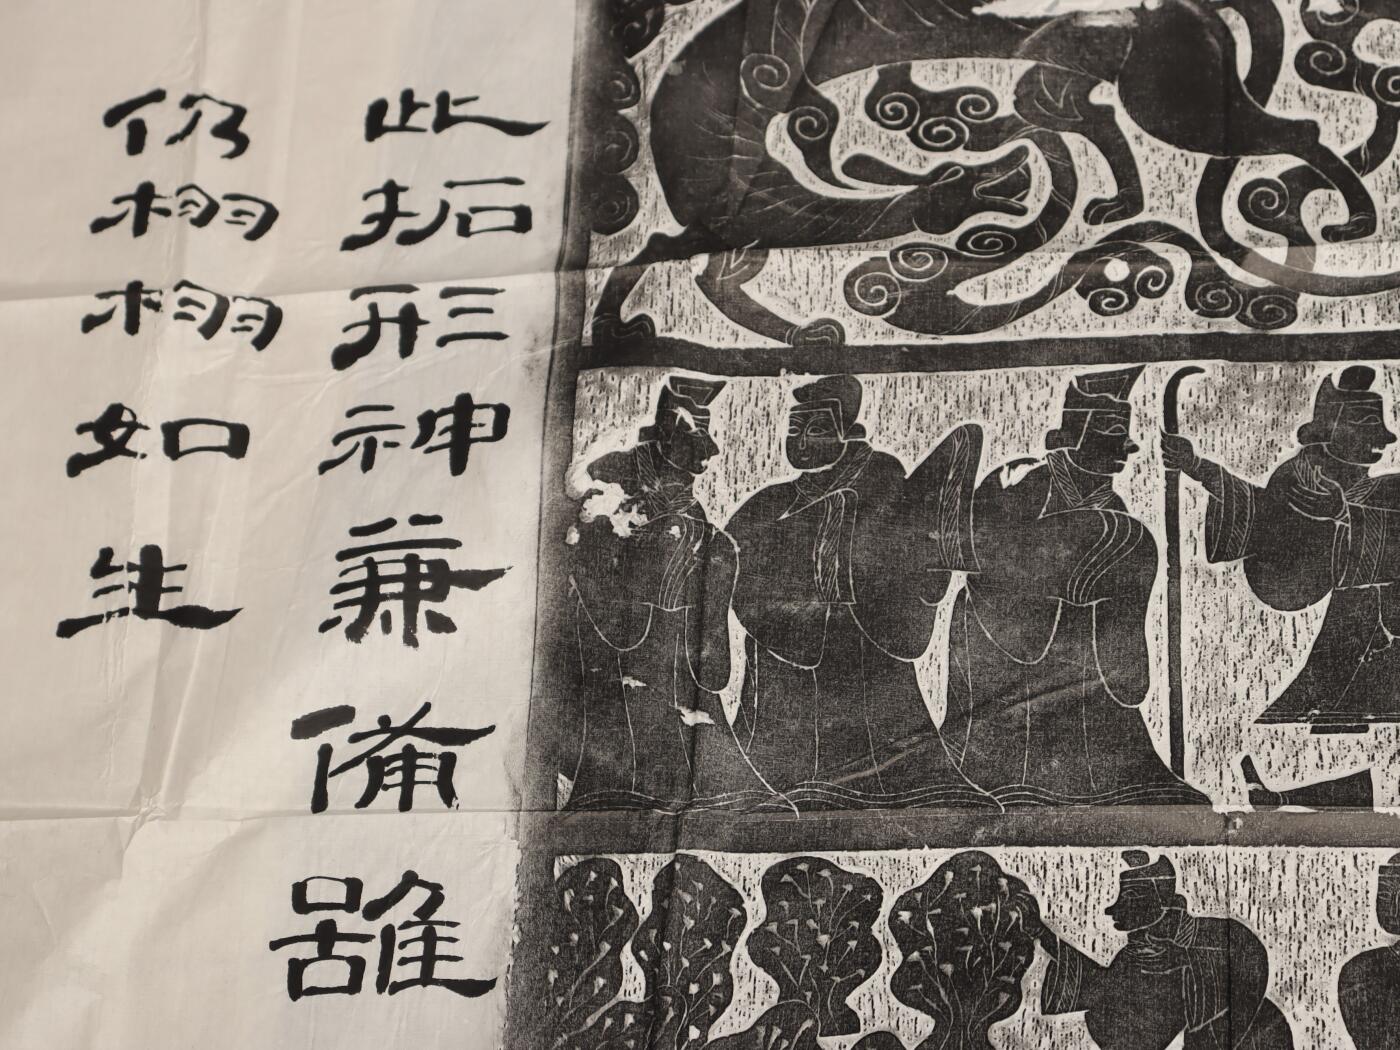 此拓形神兼備雖
仍栩栩如生